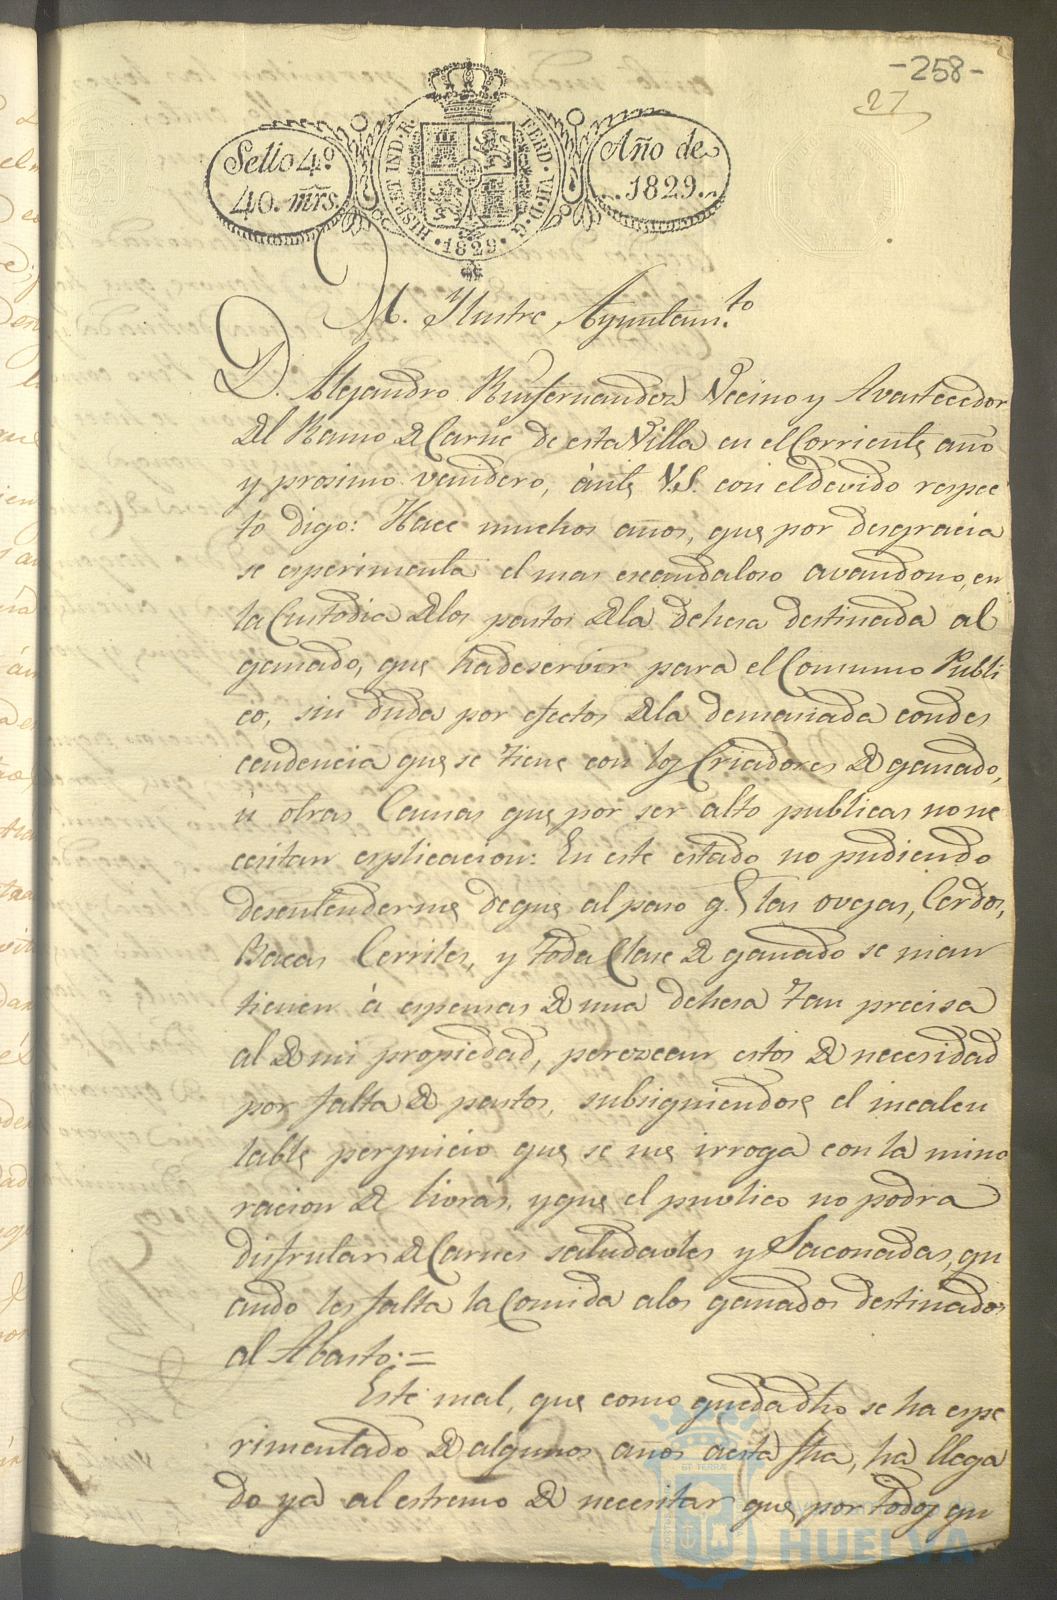 -258-
27
Sello 4º
40. mrs.
HISP. ET IND. R.
FERD. VII. D. G.
·1829·
Año de
1829.
M. Ylustre Ayuntam.to
D. Alejandro Ruifernandez Vecino y Avastecedor
del Ramo de Carne de esta Villa en el Corriente año
y prosimo venidero, ànte V.S. con el devido respec
to digo: Hace muchos años, que por desgracia
se esperimenta el mas escandaloso avandono, en
la Custodia de los pastos de la dehesa destinada al
ganado, que ha de servir para el Consumo Publi
co, sin duda por efectos de la demasiada condes
cendencia que se tiene con los Criadores de ganado,
ù otras Causas que por ser alto publicas no ne
cesitan esplicacion: En este estado no pudiendo
desentenderme de que al paso q.e las ovejas, Cerdos,
Bacas Cerriles, y toda Clase de ganado se man
tienen à espensas de una dehesa tan precisa
al de mi propiedad, perezcan estos de necesidad
por falta de pastos, subsiguiendose el incalcu
lable perjuicio que se me irroga con la mino
racion de livras, y que el publico no podra
disfrutar de Carnes saludavles y Saconadas, qu
ando les falta la Comida a los ganados destinados
al Abasto: =
Este mal, que como queda dho se ha espe
rimentado de algunos años a esta fha, ha llega
do ya al estremo de necesitar que por todos qu
HUELVA